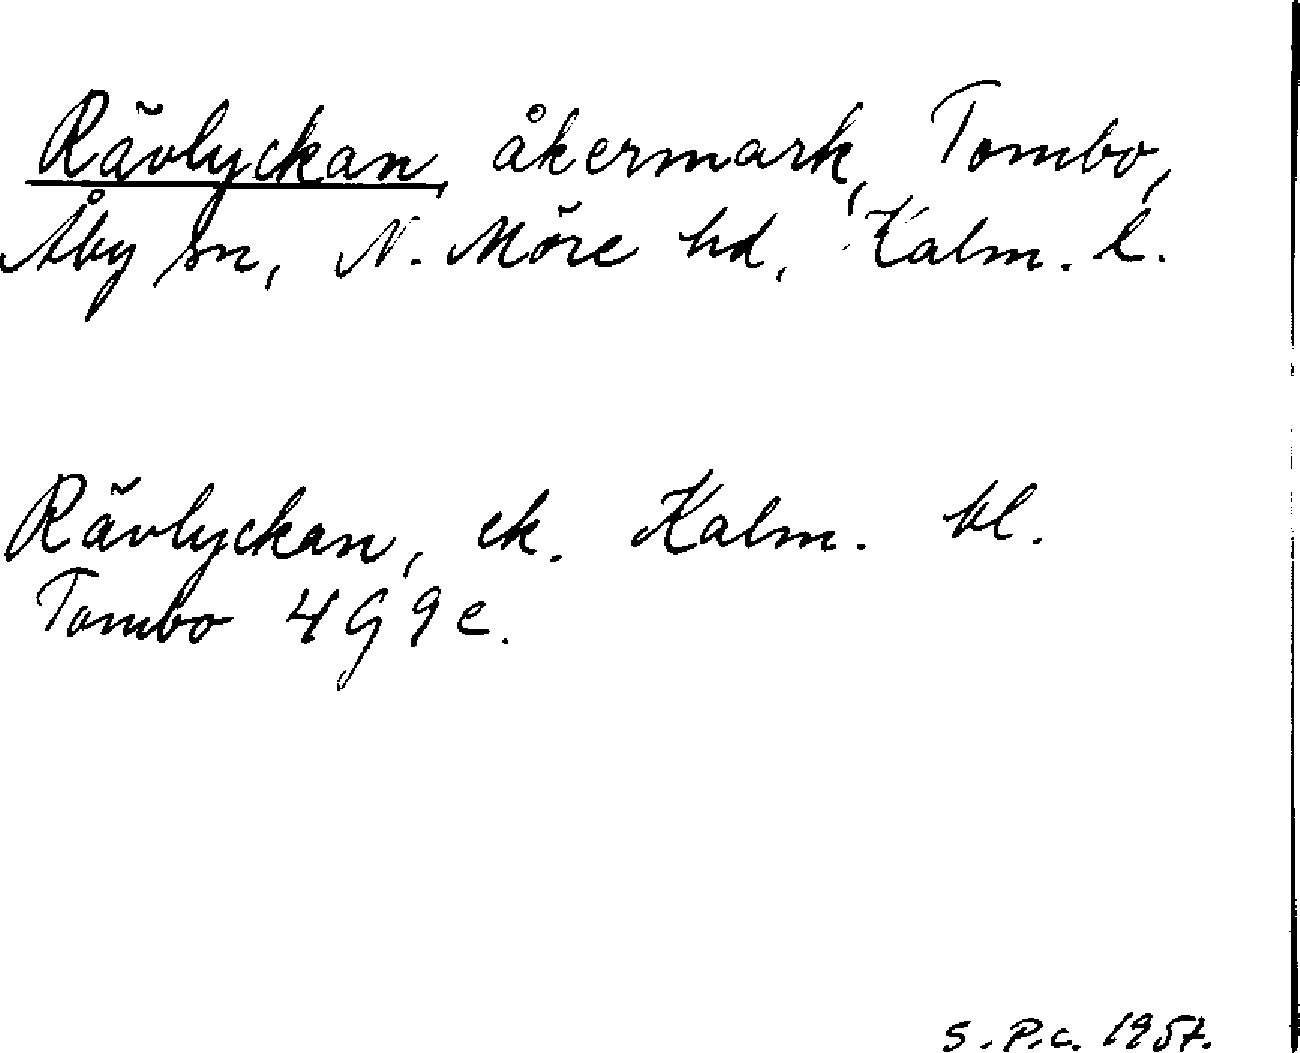 Rävlyckan, åkermark, Tombo,
Åby sn, N. Möre hd, Kalm. l.
Rävlyckan, ek. Kalm. bl.
Tombo 4G9e.
S.P.C. 1957.